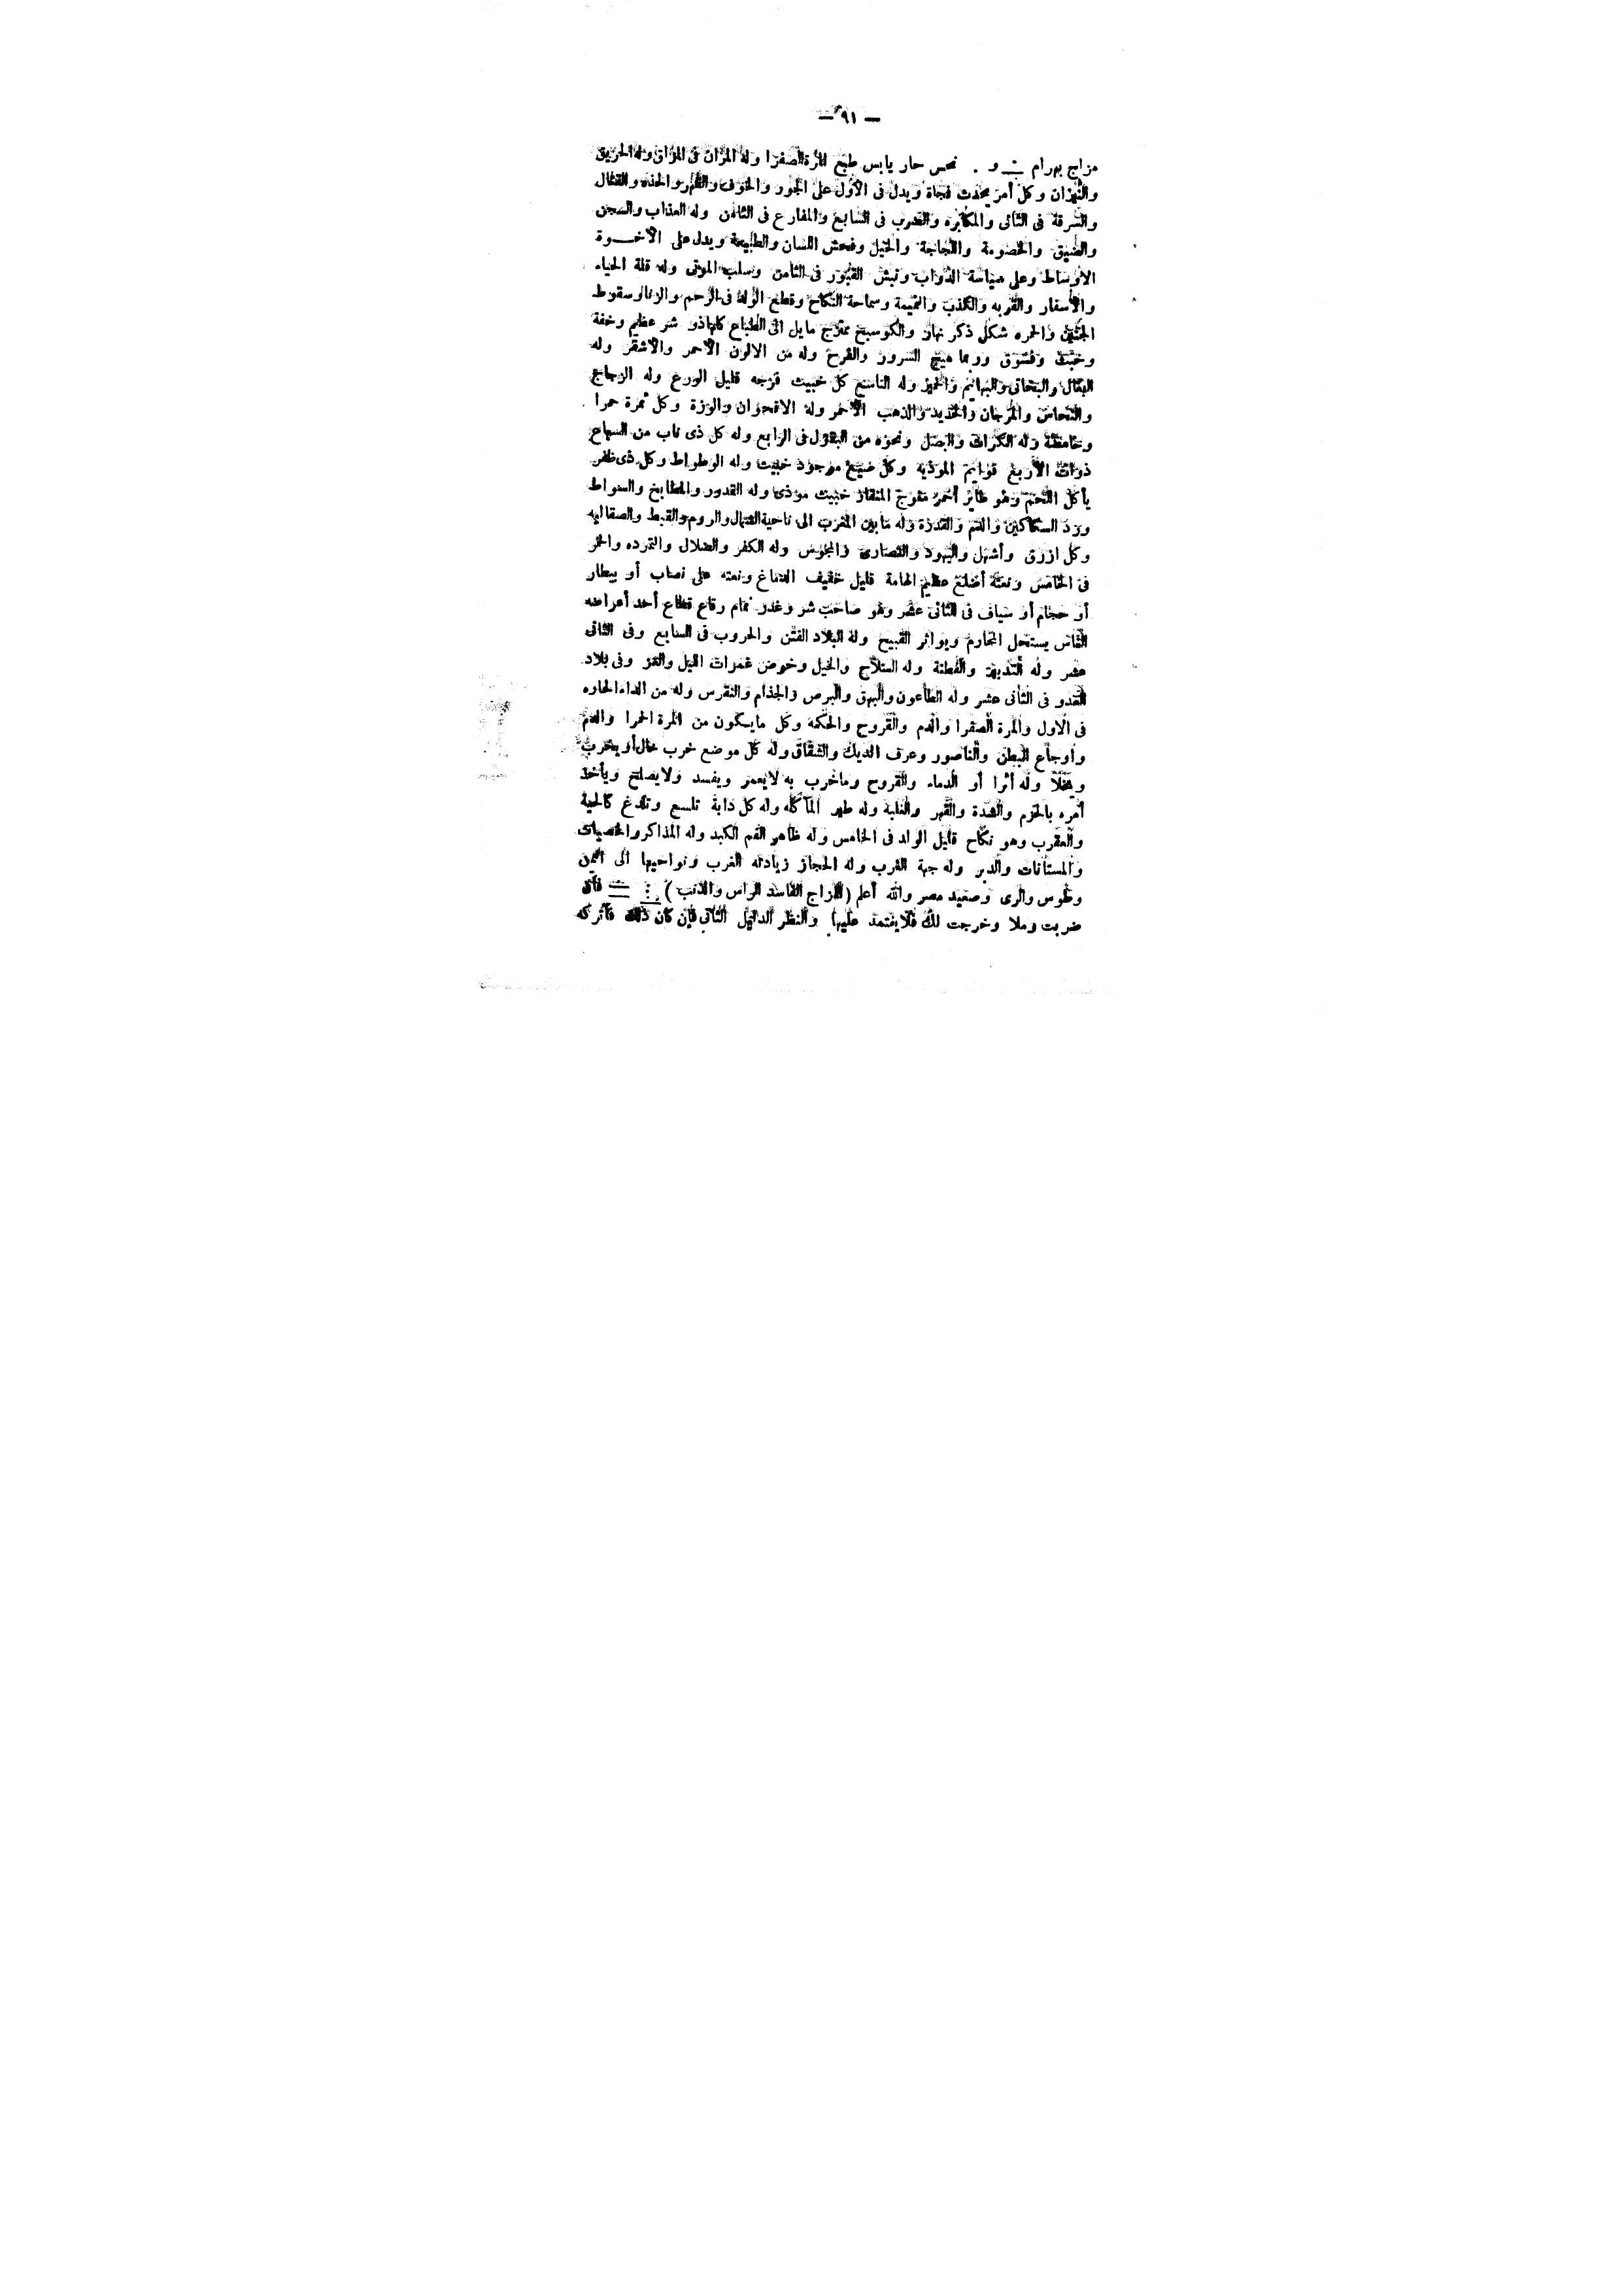 — ٩١ —
مزاج بهرام و . نحس حار يابس طبع المرة الصفرا وله المران فى المراق وله الحريق
والنيران وكل أمر يحدث فجاة ويدل فى الأول على الجور والخوف والقهر والحده والقتال
والسرقة فى الثانى والمكابره والضرب فى السابع والمفارع فى الثامن وله العذاب والسجن
والضيق والخصومة واللجاجة والخيل وفحش اللسان والطبيعة ويدل على الأخـــوة
الأوساط وعلى سياسة الدواب ونبش القبور فى الثامن وسلب الموتى وله قلة الحياء
والأسفار والغربه والكذب والنميمة وسماحة النكاح وقطع الولد فى الرحم والزنا وسقوط
الجنين والحمره شكل ذكر نهار والكوسج ممتزج مايل الى الطباع كلها ذو شر عظيم وخفة
وخبث وفسوق وربما هيج السرور والفرح وله من الالون الأحمر والأشقر وله
البغال والبخاتى والبهائم والحمير وله التاسع كل خبيث فرجه قليل الورع وله الزجاج
والنحاس والمرجان والحديد والذهب الأحمر وله الاقحوان والوزة وكل ثمرة حمرا
وحامضة وله الكراث والبصل ونحوه من البقول فى الرابع وله كل ذى ناب من السباع
ذوات الأربع قوايم الموذيه وكل ضبع موجود خبيث وله الوطواط وكل ذى ظفر
يأكل اللحم وهو طاير أحمر معوج المنقار خبيث موذى وله القدور والمطابخ والسواط
ورد السكاكين والسم والقدرة وله مابين المغرب الى ناحية الشمال والروم والقبط والصقاليه
وكل ازرق وأشهل واليهود والنصارى والمجوس وله الكفر والضلال والتمرده والخمر
فى الخامس ونعته أضلع عظيم الهامة قليل خفيف الدماغ ونعته على نصاب أو بيطار
أو حجام أو سياف فى الثانى عشر وهو صاحب شر وغدر نمام رقاع قطاع أحد أعراضه
الناس يستحل المحارم ويواثر القبيح وله البلاد الفتن والحروب فى السابع وفى الثانى
عشر وله التدبير والفطنة وله السلاح والخيل وخوض غمرات الليل والغز وفى بلاد
العدو فى الثانى عشر وله الطاعون والبهق والبرص والجذام والنقرس وله من الداء الحاره
فى الاول والمرة الصفرا والدم والقروح والحكمة وكل مايسكون من المرة الحمرا والدم
وأوجاع البطن والناصور وعرف الديك والشقاق وله كل موضع خرب خال أو يخرب
ويخلا وله أثرا أو الدماء والقروح وماخرب به لايعمر ويفسد ولايصلح ويأخذ
أمره بالحزم والشدة والقهر والغلبة وله طير المآكله وله كل دابة تلسع وتلدغ كالحية
والعقرب وهو نكاح قليل الولد فى الخامس وله ظاهر الفم الكبد وله المذاكر والخصيات
والمستأنات والدبر وله جهة الغرب وله الحجاز زيادته الغرب ونواحيها الى اليمن
وطوس والرى وصعيد مصر والله أعلم (المزاج الفاسد الراس والذنب) فان
ضربت وملا وخرجت لك فلا يعتمد عليها والنظر الدليل الثانى فإن كان ذلك فأتركه